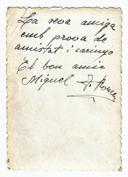 La seva amiga
emb prova de
amistat i carinyo
El bon amic
Miquel